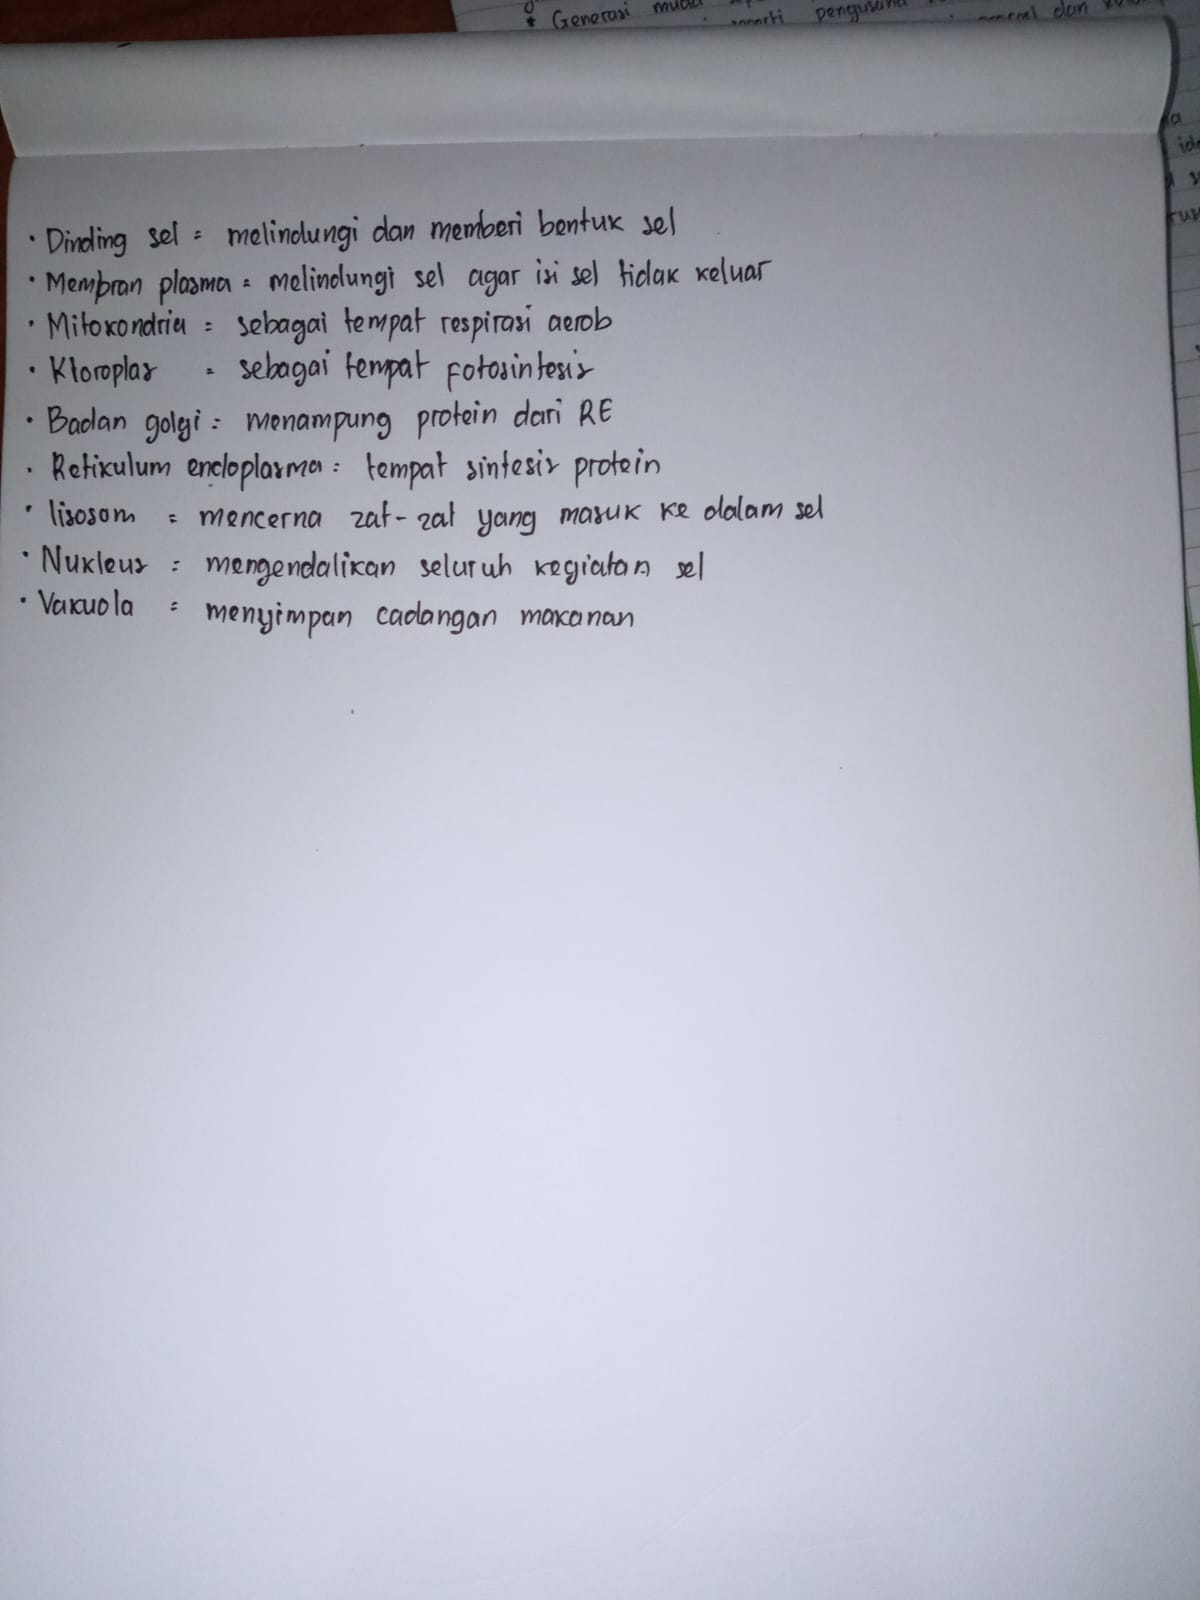 * Generasi muda
pengusaha
dan
· Dinding sel = melindungi dan memberi bentuk sel
· Membran plasma = melindungi sel agar isi sel tidak keluar
· Mitokondria = sebagai tempat respirasi aerob
· Kloroplas = sebagai tempat fotosintesis
· Badan golgi = menampung protein dari RE
· Retikulum endoplasma = tempat sintesis protein
· lisosom = mencerna zat-zat yang masuk ke dalam sel
· Nukleus = mengendalikan seluruh kegiatan sel
· Vakuola = menyimpan cadangan makanan